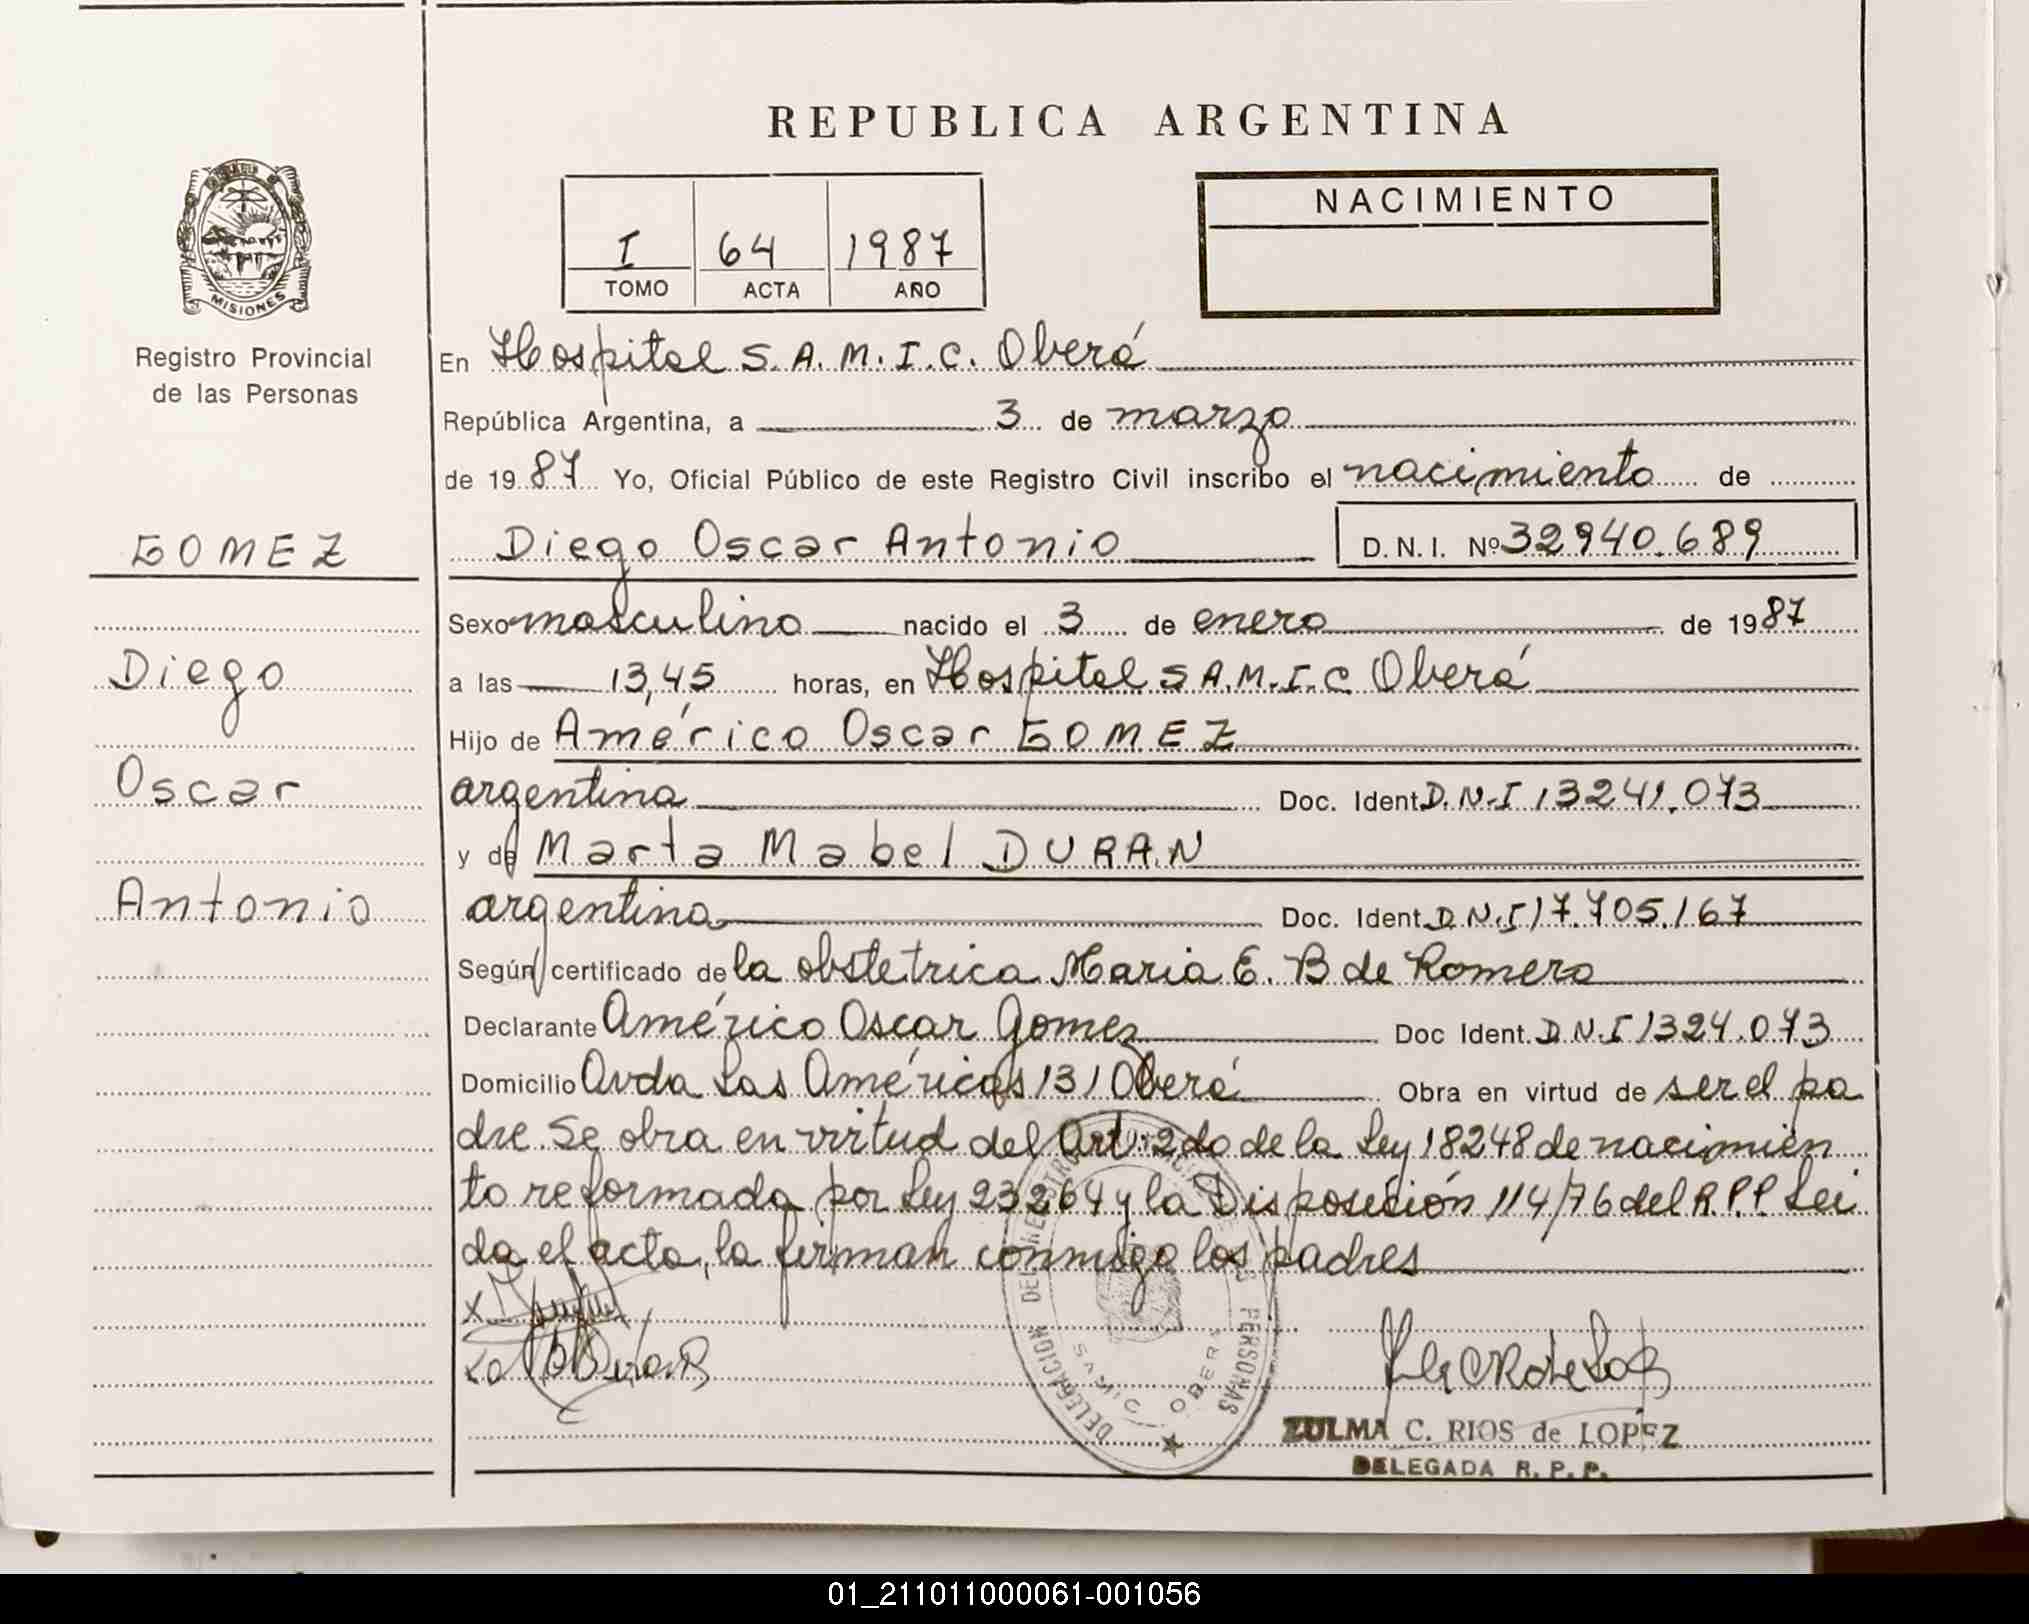 REPUBLICA ARGENTINA
NACIMIENTO
I 64 1987
TOMO ACTA AÑO
MISIONES
Registro Provincial
de las Personas
En Hospital S.A.M.I.C. Oberá
República Argentina, a 3 de marzo
de 1987 Yo, Oficial Público de este Registro Civil inscribo el nacimiento de
GOMEZ
Diego Oscar Antonio D.N.I. Nº 32940.689
Sexo masculino nacido el 3 de enero de 1987
Diego
a las 13,45 horas, en Hospital S A.M.I.C Oberá
Hijo de Américo Oscar GOMEZ
Oscar
argentina Doc. Ident. D.N.I 13241.073
y de Marta Mabel DURAN
Antonio
argentina Doc. Ident. D.N.I 17.705.167
Según certificado de la obstetrica Maria E. B de Romero
Declarante Américo Oscar Gomez Doc Ident. D.N.I 1324.073
Domicilio Avda Las Américas 131 Oberá Obra en virtud de ser el pa
dre. Se obra en virtud del Art: 2do de la Ley 18248 de nacimien
to reformada por Ley 23264 y la Disposición 114/76 del R.P.P. Lei
da el acta, la firman conmigo los padres
DELEGACION DEL REGISTRO PROVINCIAL DE LAS PERSONAS
SAMIC OBERA
ZULMA C. RIOS de LOPEZ
DELEGADA R.P.P.
01_211011000061-001056